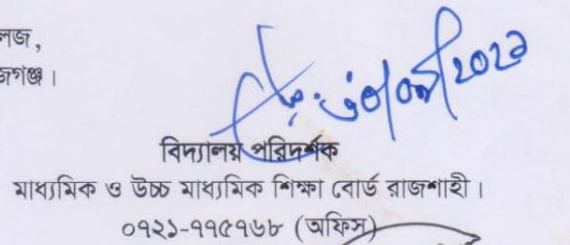 লজ,
জগঞ্জ।
বিদ্যালয় পরিদর্শক
মাধ্যমিক ও উচ্চ মাধ্যমিক শিক্ষা বোর্ড রাজশাহী।
০৭২১-৭৭৫৭৬৮ (অফিস)